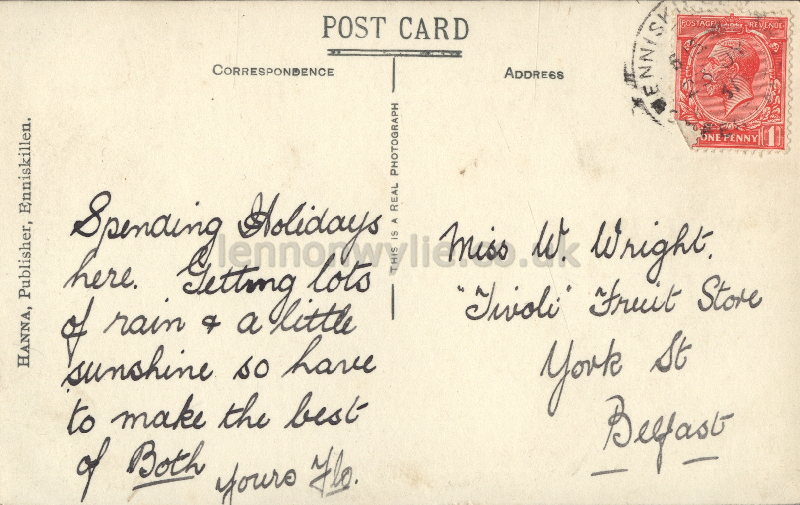 POST CARD
CORRESPONDENCE
ADDRESS
HANNA, Publisher, Enniskillen.
THIS IS A REAL PHOTOGRAPH
POSTAGE REVENUE
ONE PENNY 1
ENNISK
Spending Holidays
here. Getting lots
of rain & a little
sunshine so have
to make the best
of Both
Yours Flo.
Miss W. Wright.
"Tivoli" Fruit Store
York St
Belfast
lennonwylie.co.uk